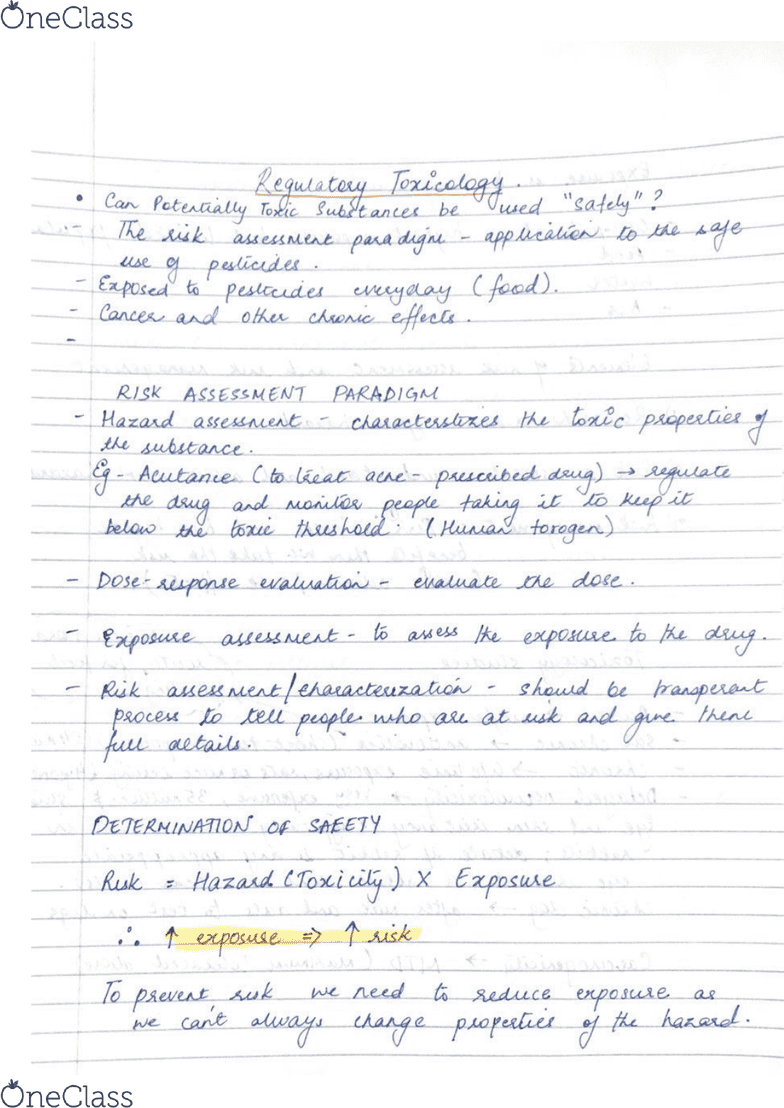 OneClass
Regulatory Toxicology.
• Can Potentially Toxic Substances be used "safely"?
- The risk assessment paradigm - application to the safe
use of pesticides.
- Exposed to pesticides everyday (food).
- Cancer and other chronic effects.
-
RISK ASSESSMENT PARADIGM
- Hazard assessment - characterstizes the toxic properties of
the substance.
Eg - Acutance (to treat acne - prescribed drug) → regulate
the drug and monitor people taking it to keep it
below the toxic threshold. (Human torogen)
- Dose-response evaluation - evaluate the dose.
- Exposure assessment - to assess the exposure to the drug.
- Risk assessment/characterization - should be transperant
process to tell people who are at risk and give them
full details.
DETERMINATION OF SAFETY
Risk = Hazard (Toxicity) X Exposure
∴ ↑ exposure => ↑ risk
To prevent risk we need to reduce exposure as
we can't always change properties of the hazard.
OneClass